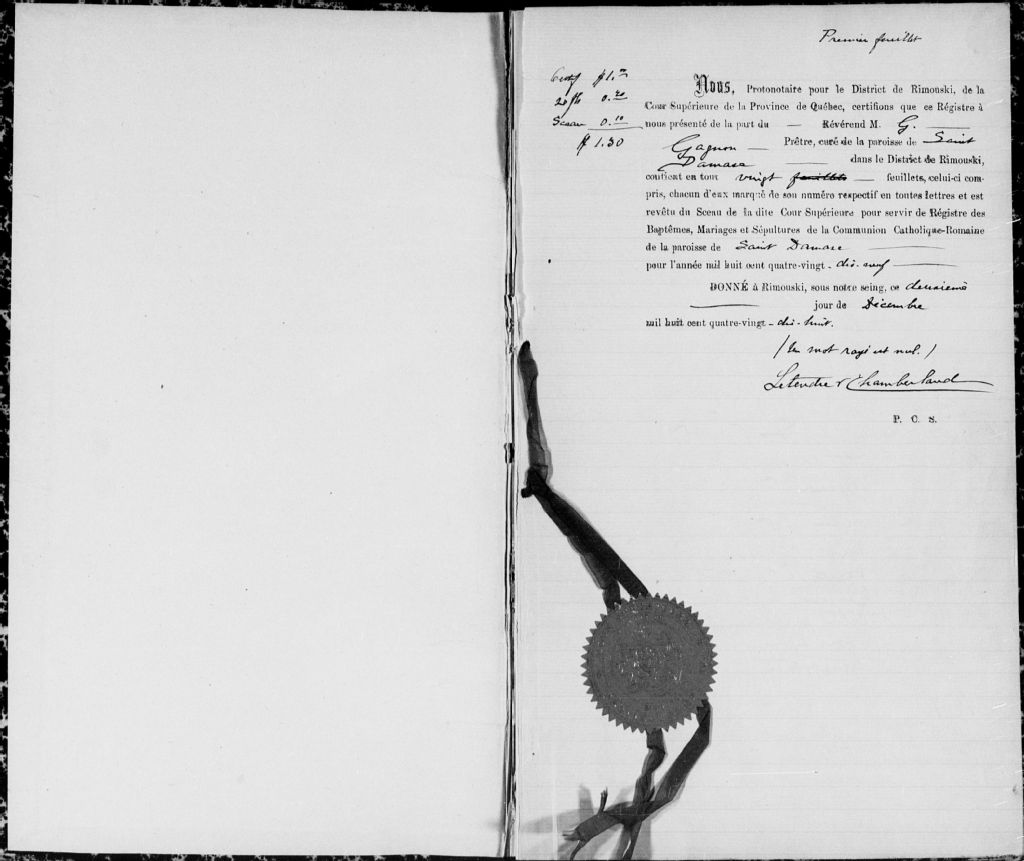 Premier feuillet
Certif $1.00
20 fts 0.20
Sceau 0.10
$1.30
Nous, Protonotaire pour le District de Rimouski, de la
Cour Supérieure de la Province de Québec, certifions que ce Régistre à
nous présenté de la part du — Révérend M. G. —
Gagnon — Prêtre, curé de la paroisse de Saint
Damase — dans le District de Rimouski,
contient en tout vingt feuillets — feuillets, celui-ci com-
pris, chacun d'eux marqué de son numéro respectif en toutes lettres et est
revêtu du Sceau de la dite Cour Supérieure pour servir de Régistre des
Baptêmes, Mariages et Sépultures de la Communion Catholique-Romaine
de la paroisse de Saint Damase —
pour l'année mil huit cent quatre-vingt - dix-neuf —
DONNÉ à Rimouski, sous notre seing, ce deuxième
— jour de Décembre
mil huit cent quatre-vingt - dix-huit.
(Un mot rayé est nul.)
Letendre & Chamberland
P. C. S.